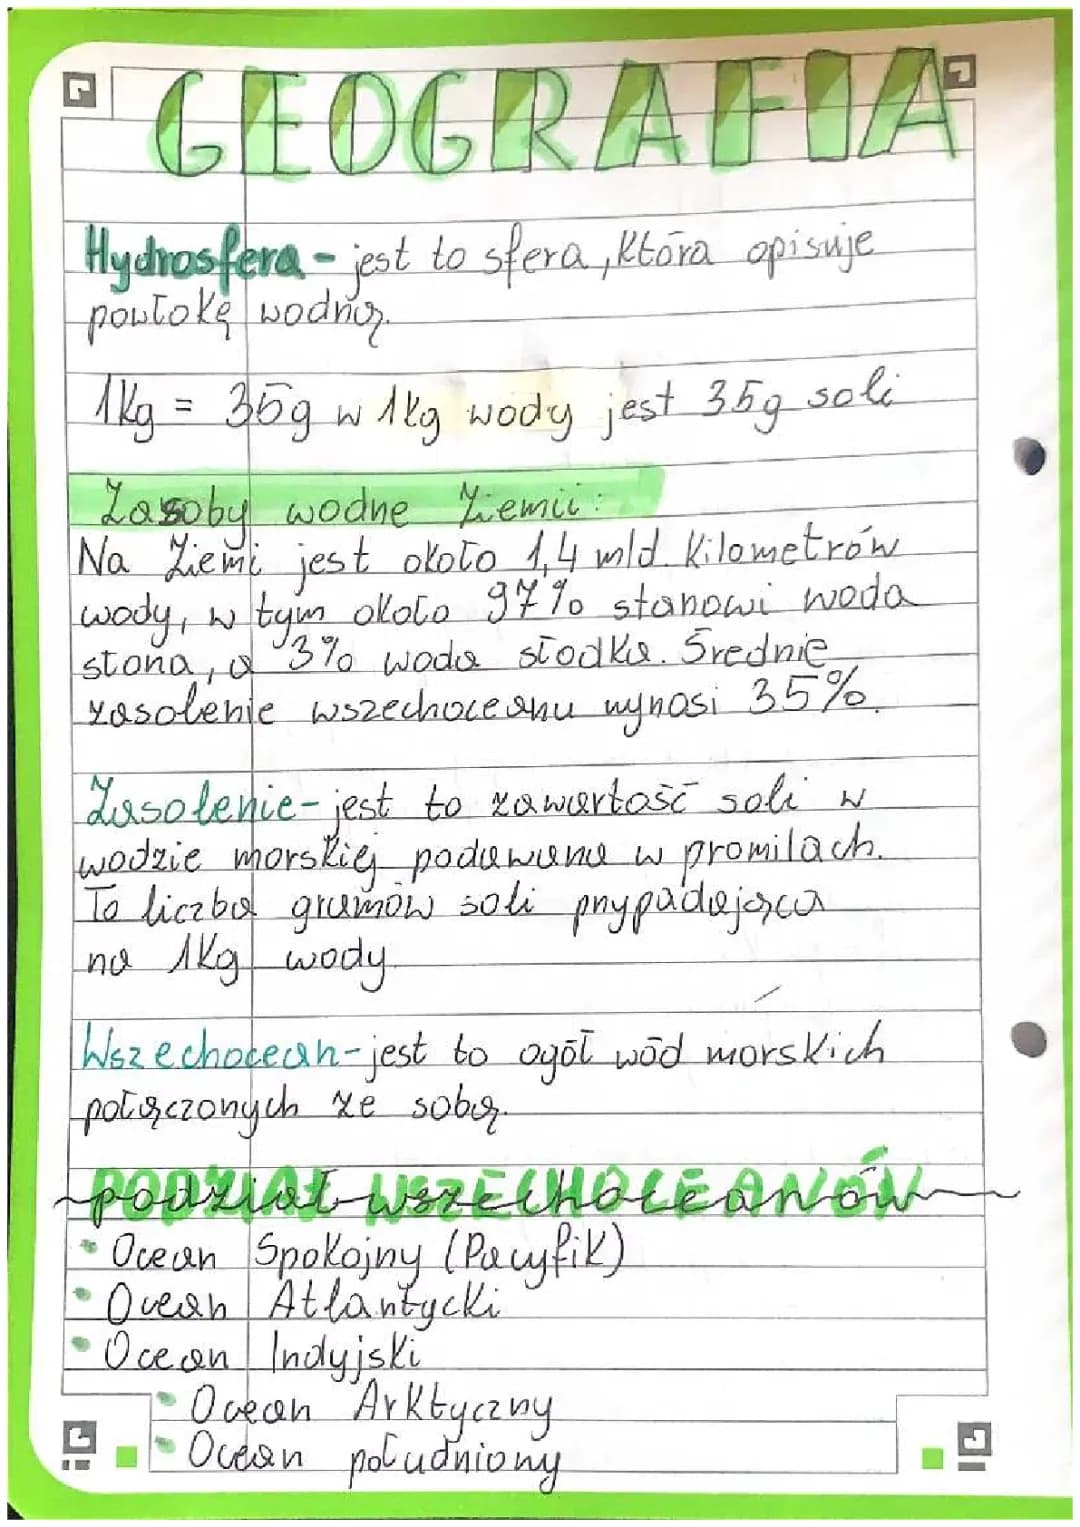 GEOGRAFIA
Hydrosfera - jest to sfera, która opisuje
powłokę wodną.
1kg = 35g w 1kg wody jest 35g soli
Zasoby wodne Ziemii:
Na Ziemi jest około 1,4 mld. kilometrów
wody, w tym około 97% stanowi woda
słona, a 3% woda słodka. Średnie
zasolenie wszechoceanu wynosi 35%.
Zasolenie - jest to zawartość soli w
wodzie morskiej podawana w promilach.
To liczba gramów soli przypadająca
na 1kg wody.
Wszechocean - jest to ogół wód morskich
połączonych ze sobą.
podział wszechoceanów
Ocean Spokojny (Pacyfik)
Ocean Atlantycki
Ocean Indyjski
Ocean Arktyczny
Ocean południony